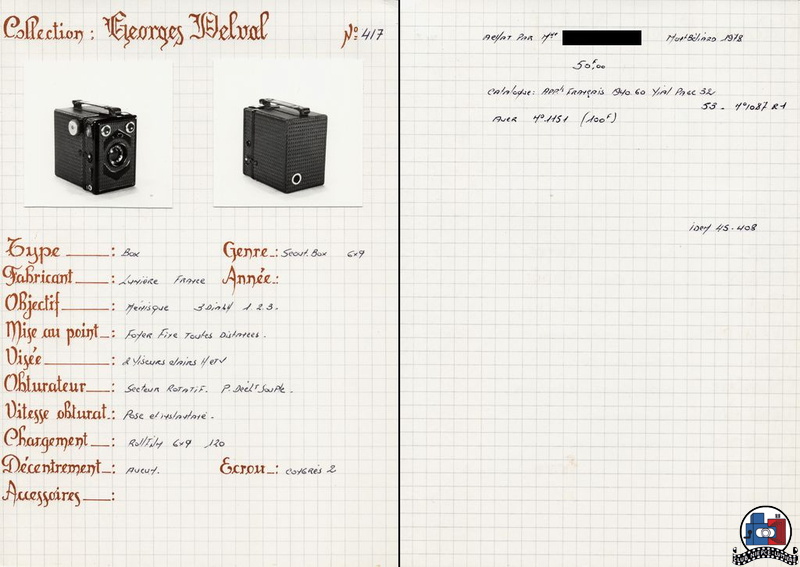 Collection : Georges Delval N° 417
Type : Box Genre : Scout. Box 6x9
Fabricant : Lumière France Année :
Objectif : Ménisque 3 Diaph 1. 2. 3.
Mise au point : Foyer Fixe Toutes Distances.
Visée : 2 Viseurs clairs H et V
Obturateur : Secteur Rotatif. P. Déclt Souple.
Vitesse obturat. : Pose et instantané.
Chargement : Rollfilm 6x9 120
Décentrement : Aucun. Ecrou : Congrès 2
Accessoires :
Achat par Mr Montbéliard 1978
50F,00
Catalogue: App. Français 1940.60 Vial Page 32
53 - N°1087 R1
Auer N°1151 (100F)
idem 45-408